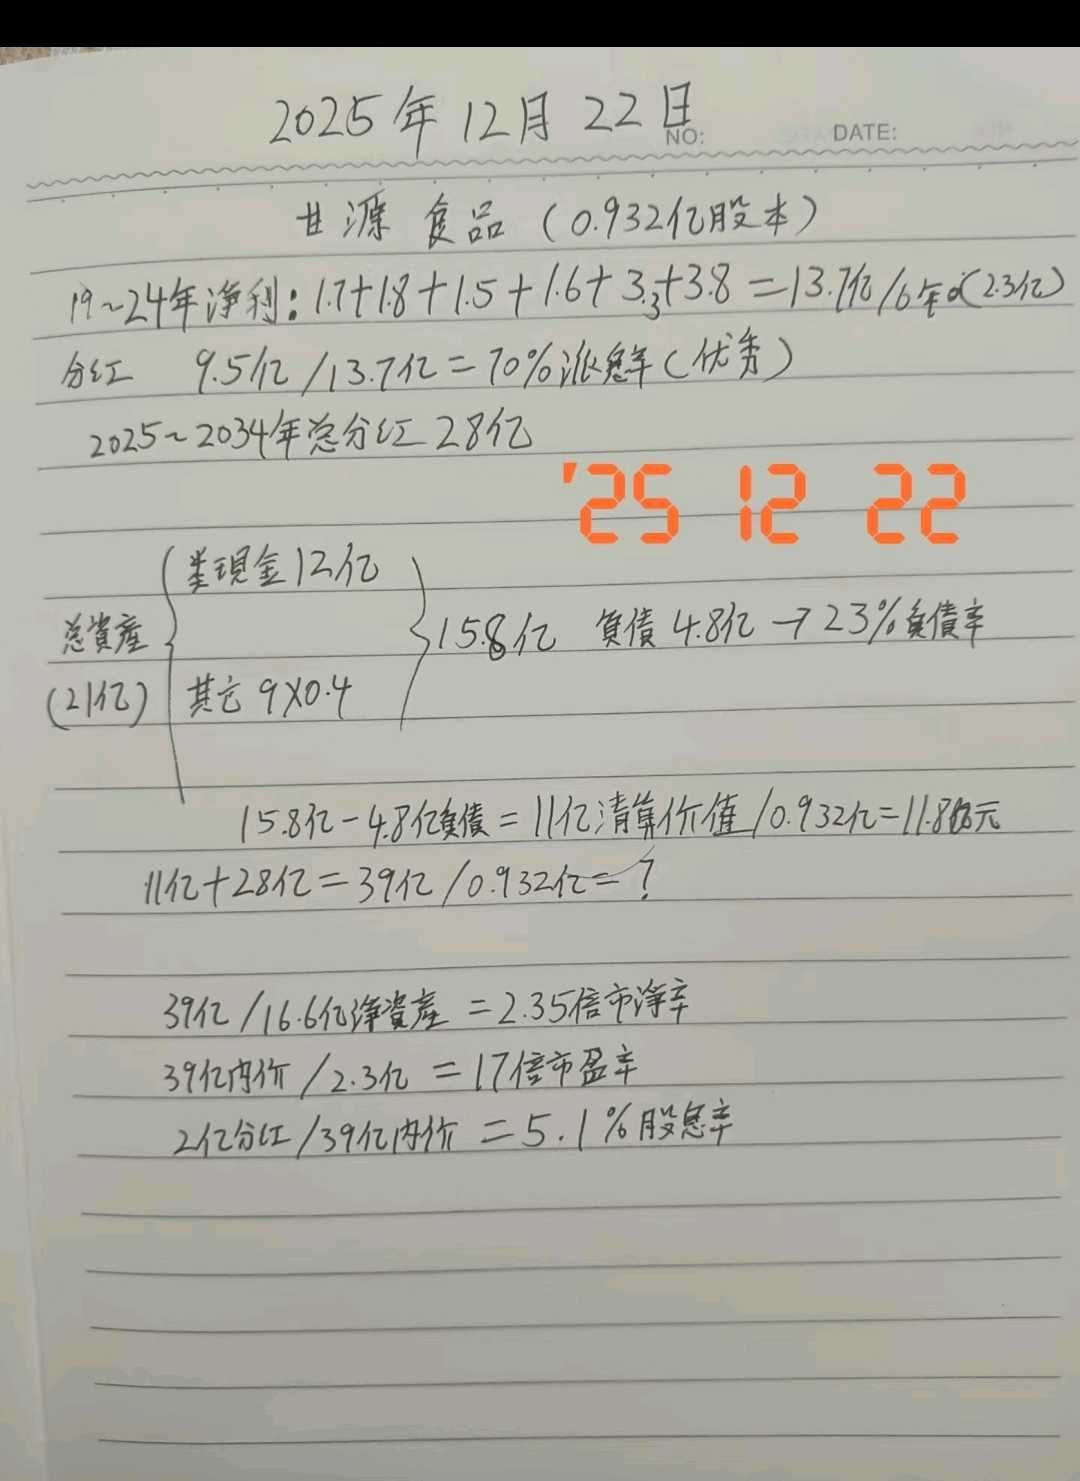 2025年12月22日
NO:
DATE:
甘源食品(0.932亿股本)
19~24年净利:1.7+1.8+1.5+1.6+3.3+3.8=13.7亿/6年(2.3亿)
分红 9.5亿/13.7亿=70%派息率(优秀)
2025~2034年总分红28亿
'25 12 22
类現金12亿
总資産
15.8亿 負債4.8亿→23%負債率
(21亿)
其它9X0.4
15.8亿-4.8亿負債=11亿清算价值/0.932亿=11.8元
11亿+28亿=39亿/0.932亿=?
39亿/16.6亿净資産=2.35倍市净率
39亿内价/2.3亿=17倍市盈率
2亿分红/39亿内价=5.1%股息率